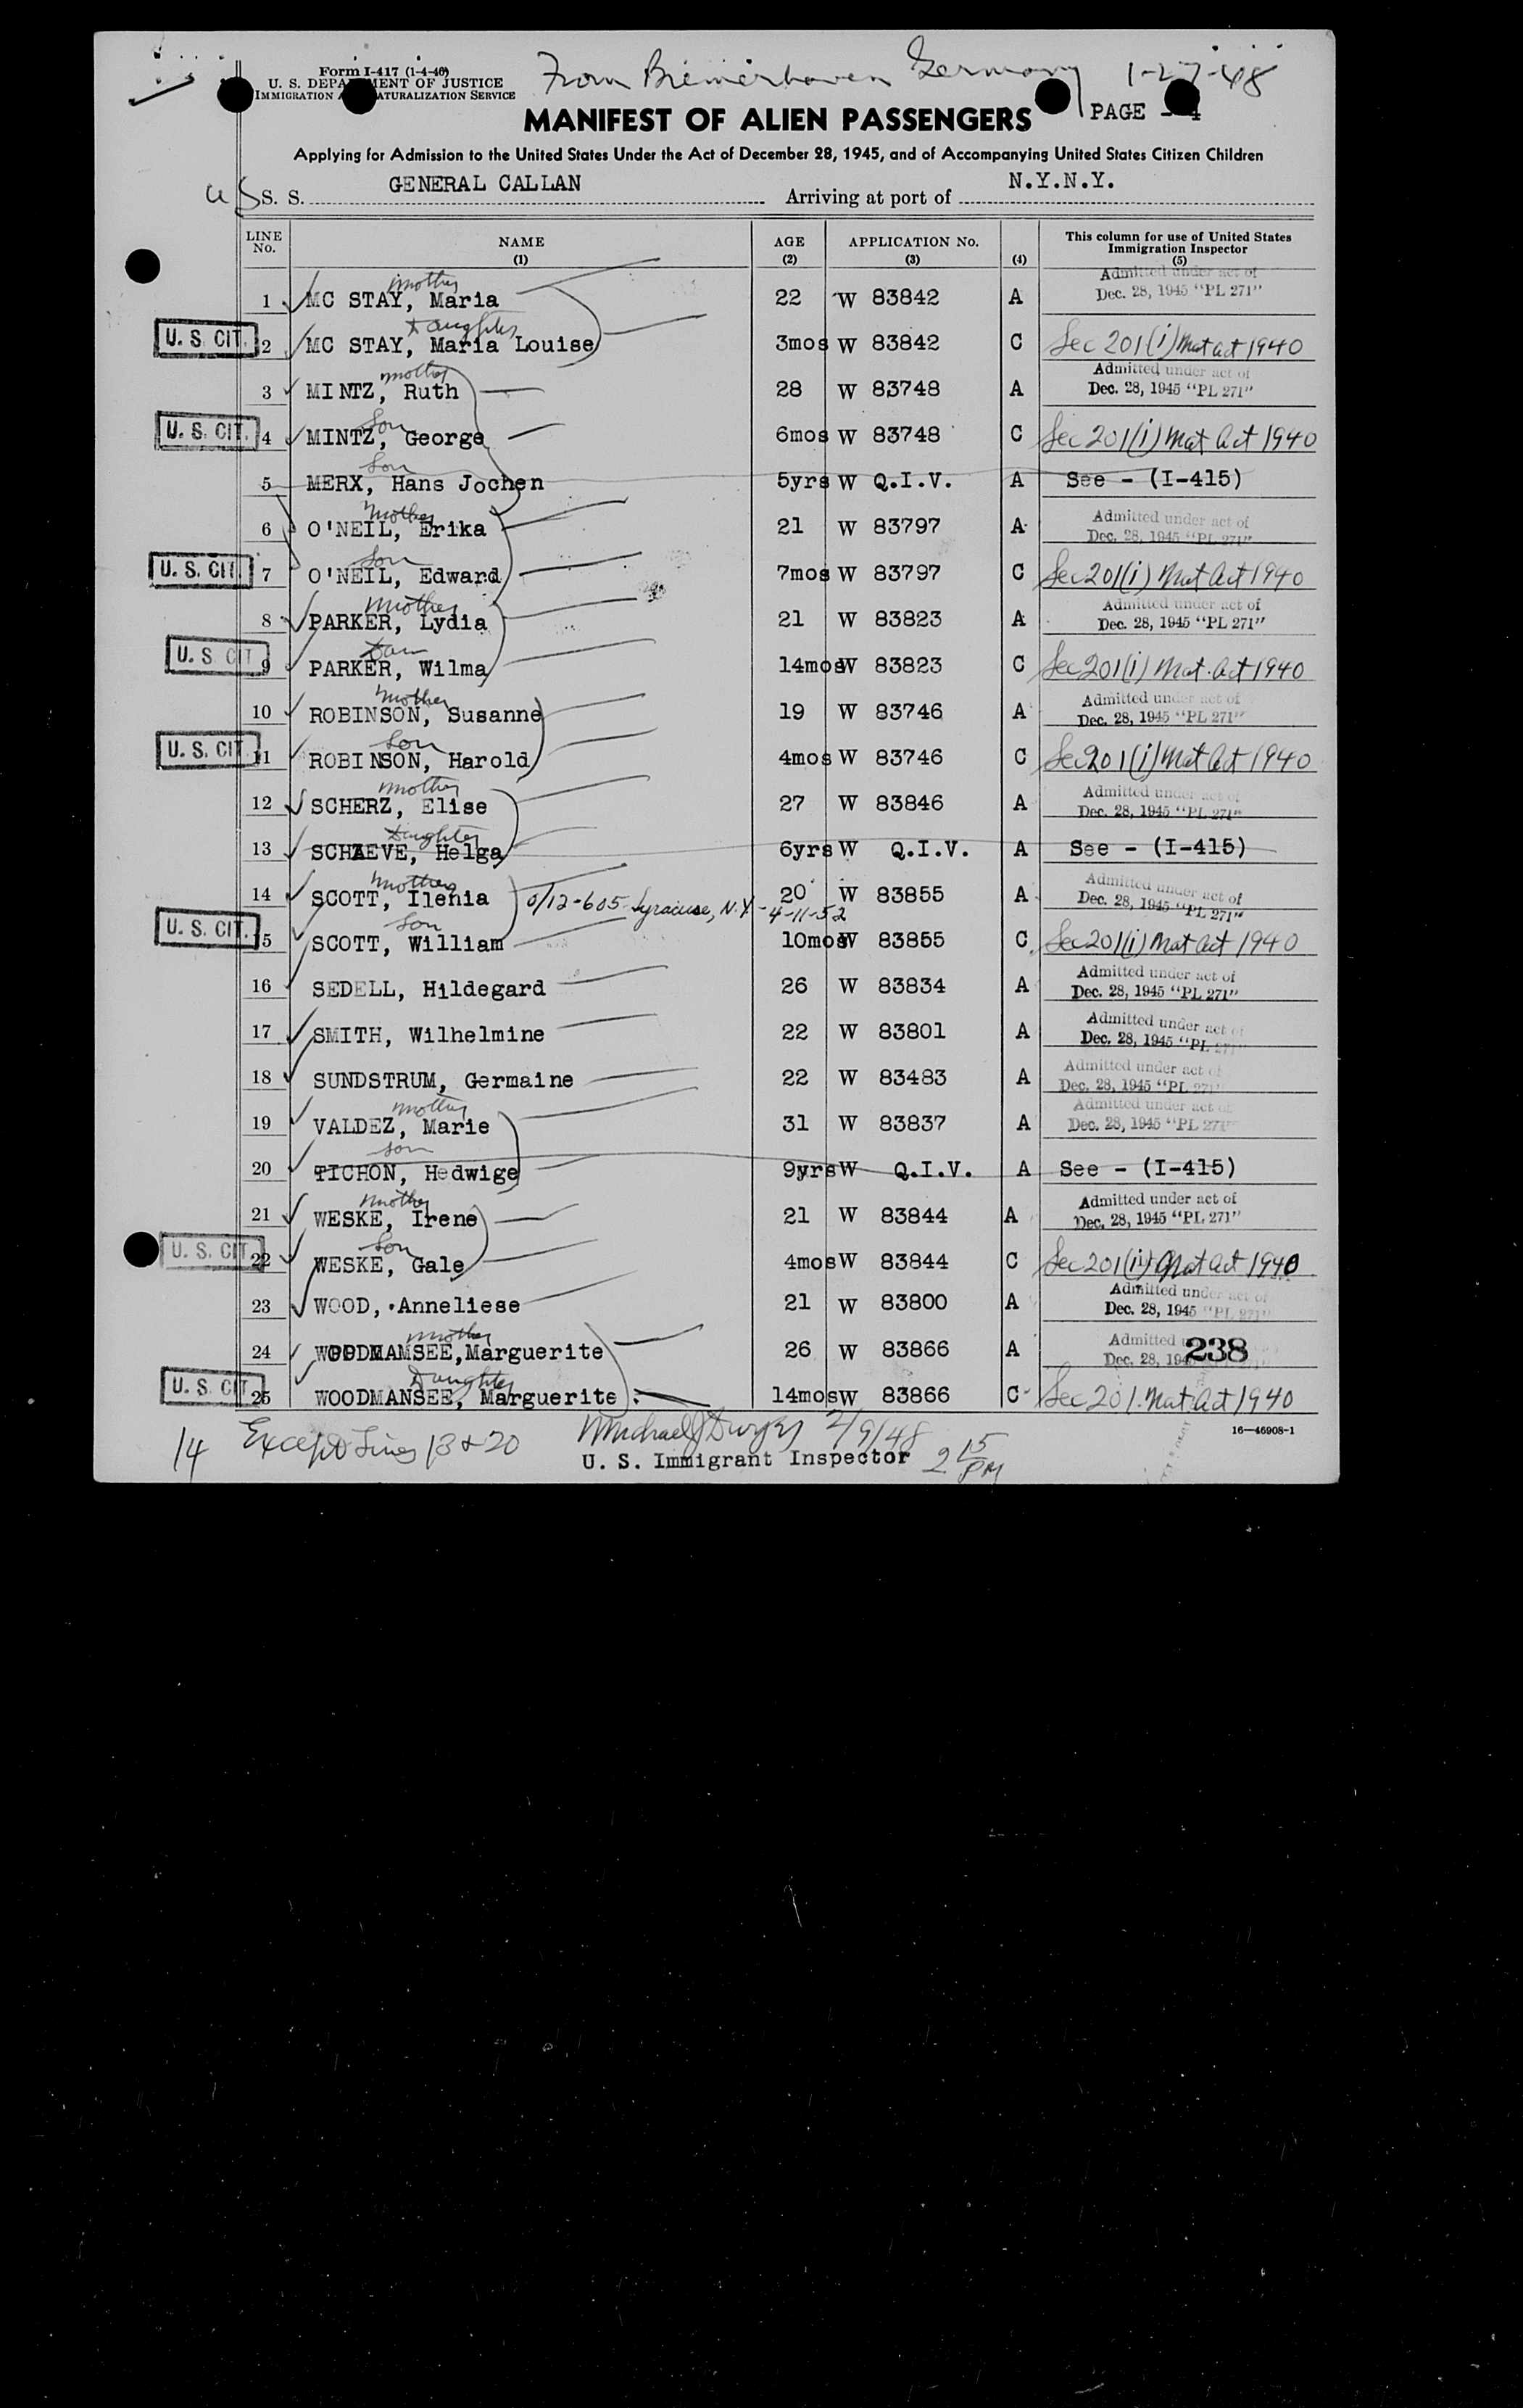 Form I-417 (1-4-46)
U. S. DEPARTMENT OF JUSTICE
IMMIGRATION AND NATURALIZATION SERVICE
From Bremerhaven Germany 1-27-48
MANIFEST OF ALIEN PASSENGERS
PAGE - 4
Applying for Admission to the United States Under the Act of December 28, 1945, and of Accompanying United States Citizen Children
US S. S. GENERAL CALLAN Arriving at port of N.Y.N.Y.
LINE No. NAME (1) AGE (2) APPLICATION No. (3) (4) This column for use of United States Immigration Inspector (5)
mother Admitted under act of
1 MC STAY, Maria 22 W 83842 A Dec. 28, 1945 "PL 271"
Daughter
U. S. CIT. 2 MC STAY, Maria Louise 3mos W 83842 C Sec 201(i) Nat Act 1940
mother Admitted under act of
3 MINTZ, Ruth 28 W 83748 A Dec. 28, 1945 "PL 271"
Son
U. S. CIT. 4 MINTZ, George 6mos W 83748 C Sec 201(i) Nat Act 1940
Son
5 MERX, Hans Jochen 5yrs W Q.I.V. A See - (I-415)
Mother Admitted under act of
6 O'NEIL, Erika 21 W 83797 A Dec. 28, 1945 "PL 271"
Son
U. S. CIT. 7 O'NEIL, Edward 7mos W 83797 C Sec 201(i) Nat Act 1940
Mother Admitted under act of
8 PARKER, Lydia 21 W 83823 A Dec. 28, 1945 "PL 271"
Dau
U. S. CIT 9 PARKER, Wilma 14mos W 83823 C Sec 201(i) Nat. Act 1940
Mother Admitted under act of
10 ROBINSON, Susanne 19 W 83746 A Dec. 28, 1945 "PL 271"
Son
U. S. CIT. 11 ROBINSON, Harold 4mos W 83746 C Sec 201(i) Nat Act 1940
mother Admitted under act of
12 SCHERZ, Elise 27 W 83846 A Dec. 28, 1945 "PL 271"
Daughter
13 SCHAEVE, Helga 6yrs W Q.I.V. A See - (I-415)
Mother Admitted under act of
14 SCOTT, Ilenia 0/12-605 Syracuse, N.Y - 4-11-52 20 W 83855 A Dec. 28, 1945 "PL 271"
Son
U. S. CIT. 15 SCOTT, William 10mos W 83855 C Sec 201(i) Nat Act 1940
Admitted under act of
16 SEDELL, Hildegard 26 W 83834 A Dec. 28, 1945 "PL 271"
Admitted under act of
17 SMITH, Wilhelmine 22 W 83801 A Dec. 28, 1945 "PL 271"
Admitted under act of
18 SUNDSTRUM, Germaine 22 W 83483 A Dec. 28, 1945 "PL 271"
mother Admitted under act of
19 VALDEZ, Marie 31 W 83837 A Dec. 28, 1945 "PL 271"
Son
20 TICHON, Hedwige 9yrs W Q.I.V. A See - (I-415)
Mother Admitted under act of
21 WESKE, Irene 21 W 83844 A Dec. 28, 1945 "PL 271"
Son
U. S. CIT. 22 WESKE, Gale 4mos W 83844 C Sec 201(i) Nat Act 1940
Admitted under act of
23 WOOD, Anneliese 21 W 83800 A Dec. 28, 1945 "PL 271"
mother Admitted
24 WOODMAMSEE, Marguerite 26 W 83866 A Dec. 28, 194 238
Daughter
U. S. CIT 25 WOODMANSEE, Marguerite 14mos W 83866 C Sec 201. Nat Act 1940
16—46908-1
14 Except Lines 13 & 20 Michael J Dwyer 2/9/48
U. S. Immigrant Inspector 2 15 PM